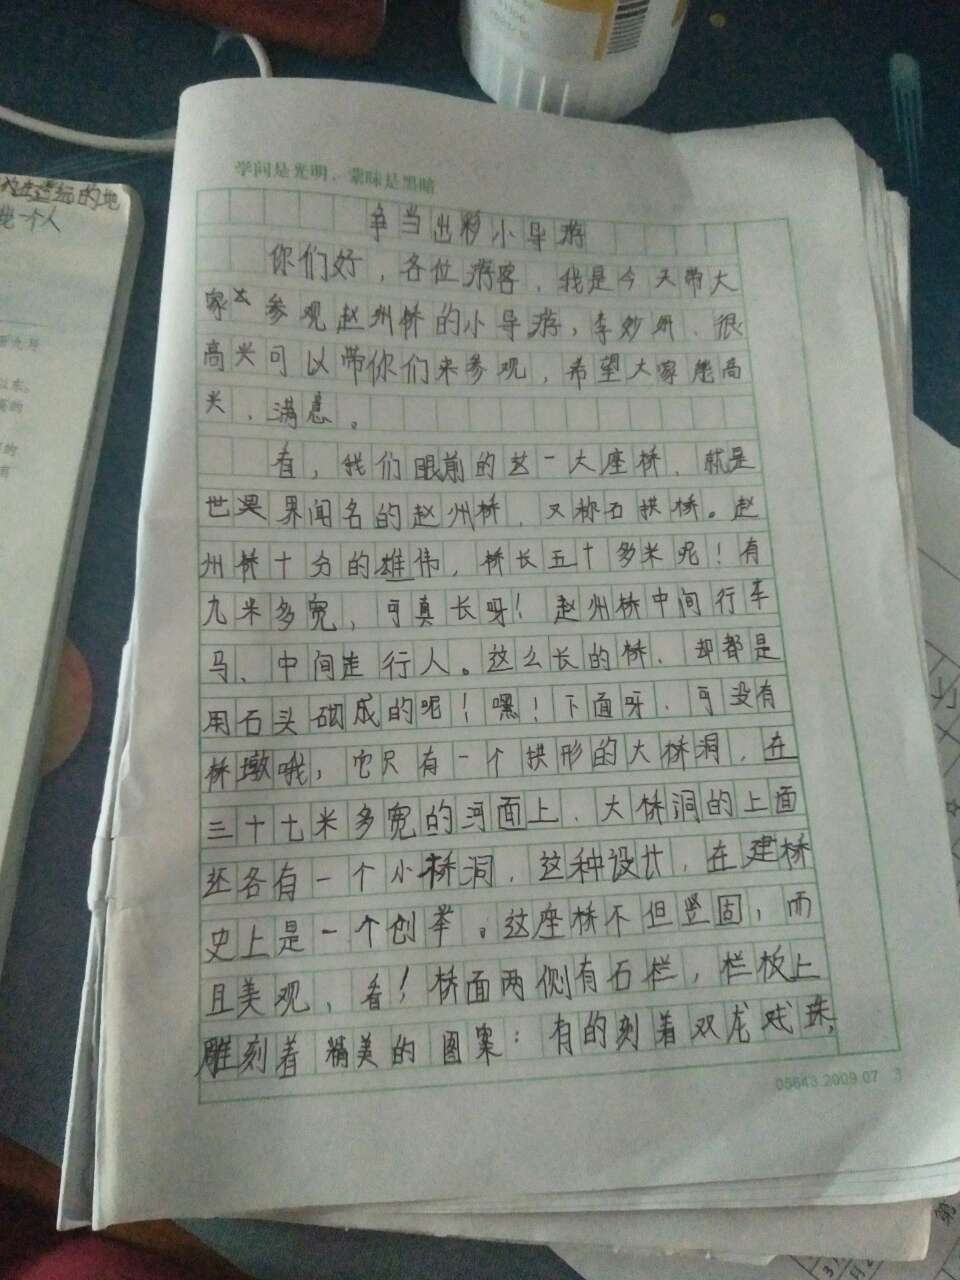 学问是光明，蒙昧是黑暗
争当出彩小导游
你们好，各位游客，我是今天带大
家去参观赵州桥的小导游，李妙妍、很
高兴可以带你们来参观，希望大家能高
兴、满意。
看，我们眼前的这一大座桥、就是
世界闻名的赵州桥，又称石拱桥。赵
州桥十分的雄伟，桥长五十多米呢！有
九米多宽，可真长呀！赵州桥中间行车
马、中间走行人。这么长的桥、却都是
用石头砌成的呢！嘿！下面呀、可没有
桥墩哦，它只有一个拱形的大桥洞，在
三十七米多宽的河面上、大桥洞的上面
还各有一个小桥洞，这种设计，在建桥
史上是一个创举。这座桥不但坚固，而
且美观，看！桥面两侧有石栏，栏板上
雕刻着精美的图案：有的刻着双龙戏珠，
05643.2009.07 3
的地
一个人